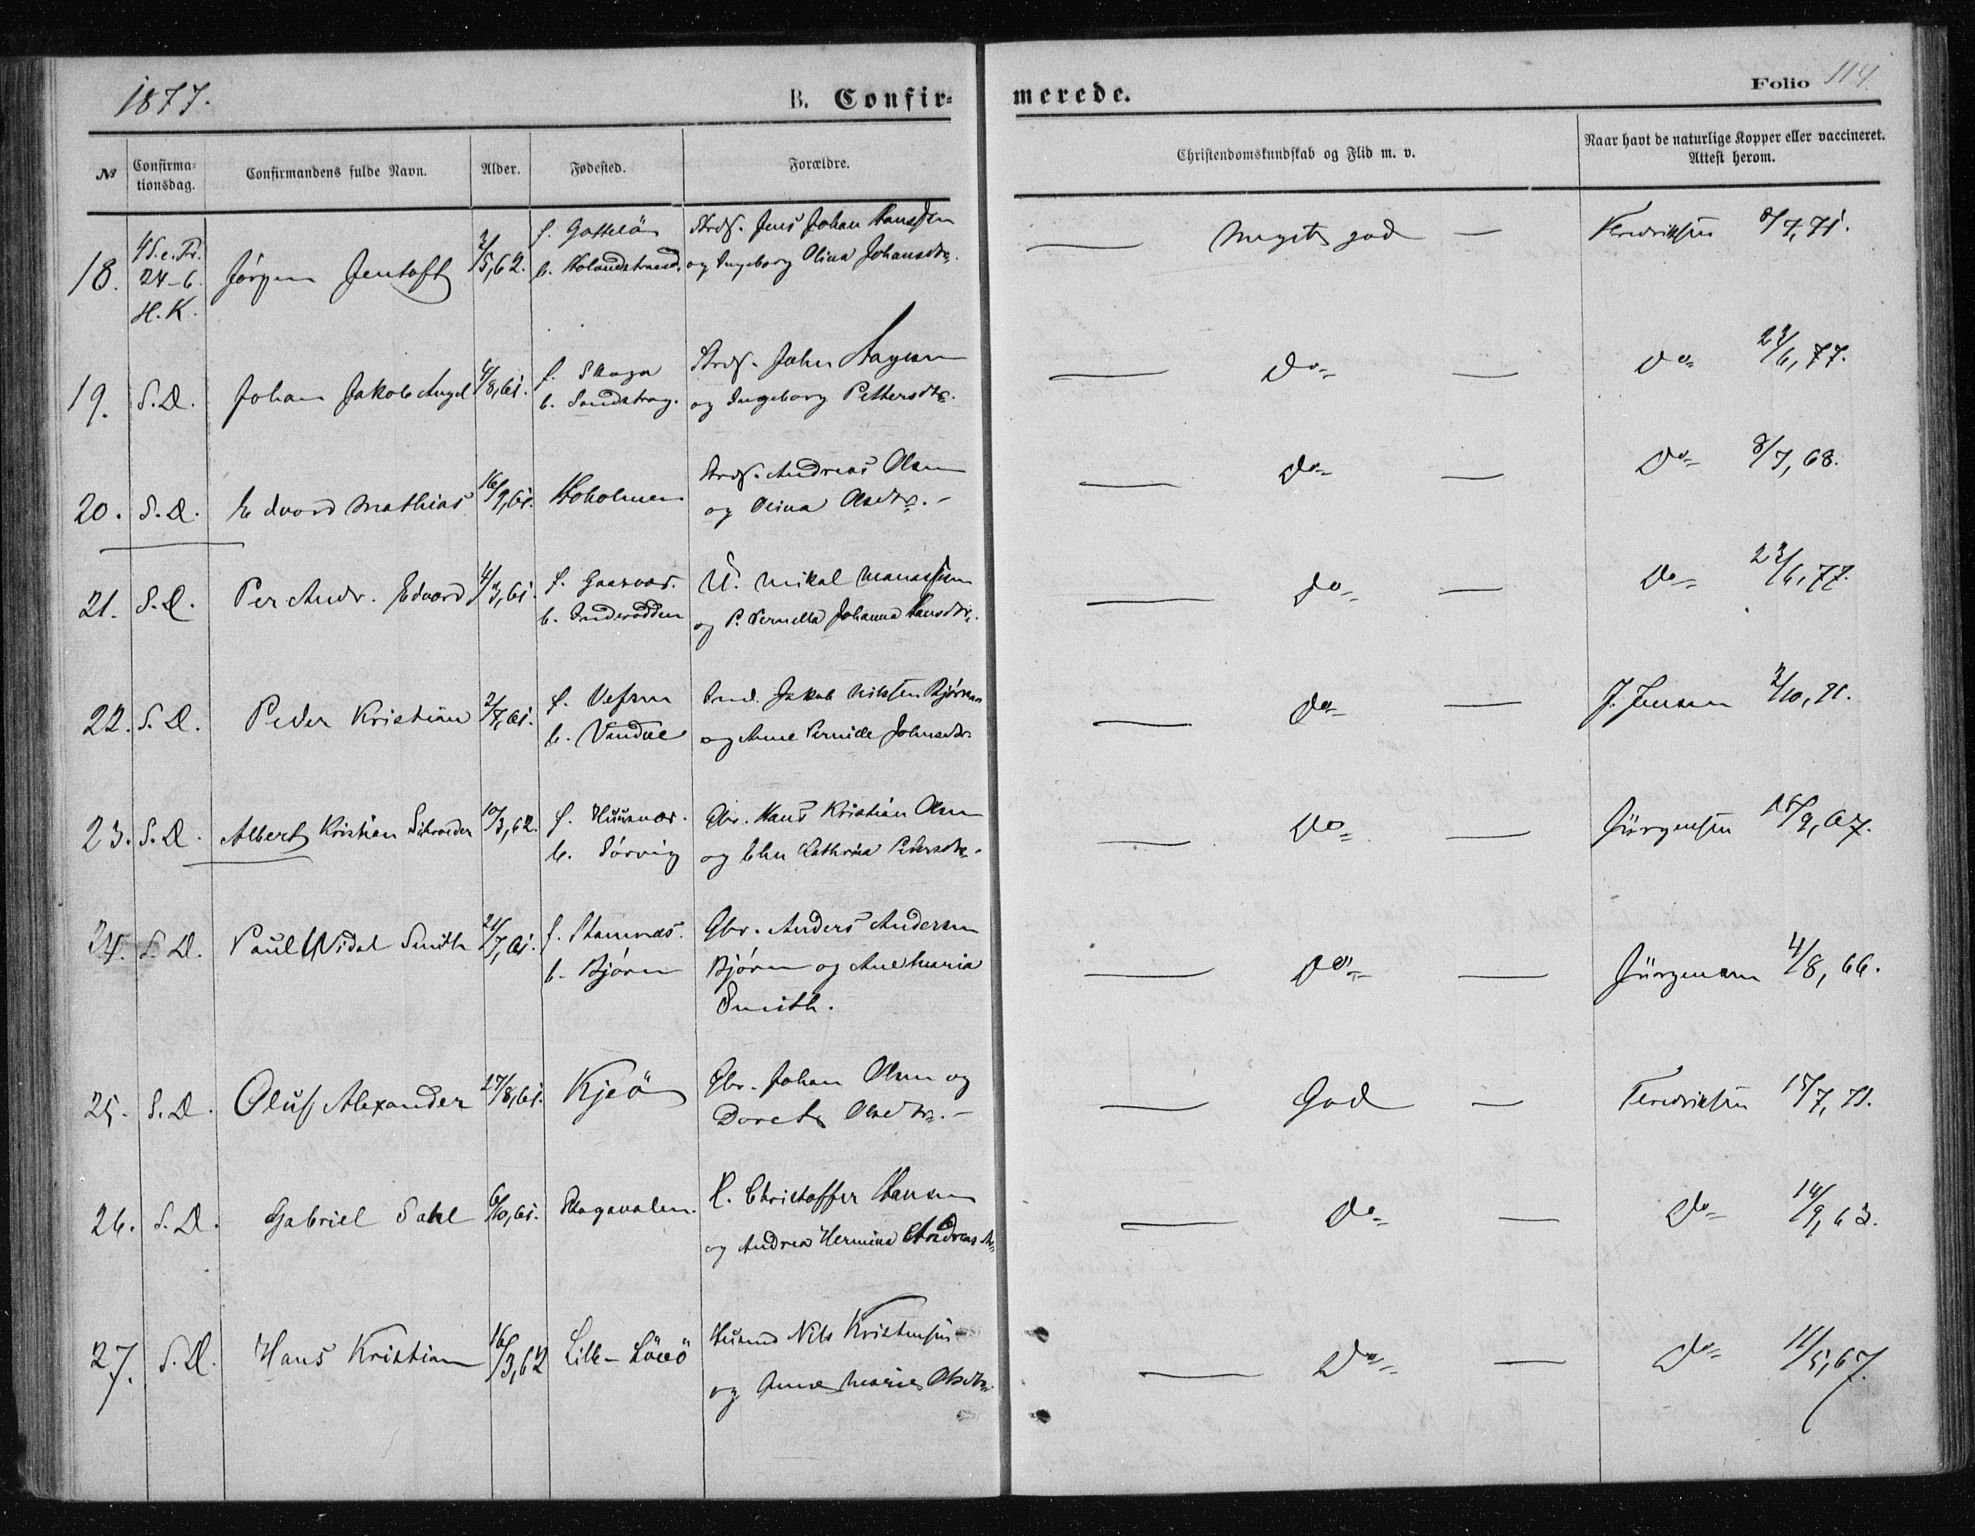 1877.
B. Confir-
merede.
Folio 114
№
Confirma-
tionsdag.
Confirmandens fulde Navn.
Alder.
Fødested.
Forældre.
Christendomskundskab og Flid m. v.
Naar havt de naturlige Kopper eller vaccineret.
Attest herom.
18. 4 S. e. Tr. 24-6 H. K. Jørgen Jentoft 2/5, 62.
b. Holandstrand.
Jens Johan Hanssen
og Ingeborg Olina Johansdtr.
— Meget god — Fredriksen 8/7, 71.
19. S. D. Johan Jakob Angel 4/8, 61.
f. Skaga
b. Sandstrag.
Strds. John Hagen
og Ingeborg Pettersdtr.
— Do — Do 23/6, 77.
20. S. D. Edvard Mathias 16/9, 61. Hoholmen
Strds. Andreas Olsen
og Olina Olsdtr. —
— Do — Do 8/7, 68.
21. S. D. Per Andr. Edvard 4/3, 61.
f. Gaasvær.
b. Inderodden
U. Mikal Manassen
og P. Pernella Johanna Hansdtr.
— Do — Do 23/6, 77.
22. S. D. Peder Kristian 2/7, 61.
f. Vefsen
b. Vandve
Jakob Nilssen Bjørn
og Anne Pernille Johnsdtr.
— Do — J. Jensen 2/10, 71.
23. S. D. Albert Kristian Schrøder 10/3, 62.
f. Huusvær.
b. Sørvig
Gbr. Hans Kristian Olsen
og Elen Kathrina Pedersdtr.
— Do — Jürgensen 15/9, 67.
24. S. D. Paul Widal Smith 21/7, 61.
f. Stamnæs.
b. Bjørn
Gbr. Anders Andersen
Bjørn og Ane Maria
Smith.
— Do — Jürgensen 4/8, 66.
25. S. D. Oluf Alexander 27/8, 61. Kjeö
Gbr. Johan Olsen og
Doret Olsdtr. —
— God — Fredriksen 15/7, 71.
26. S. D. Gabriel Dahl 6/10, 61. Skagavalen.
Christoffer Hansen
og Andrea Hermina Andreasdtr.
— Do — Do 14/9, 63.
27. S. D. Hans Kristian 16/3, 62 Lille-
Husmd Nils Kristensen
og Anne Marie Olsdtr.
— Do — Do 11/5, 67.